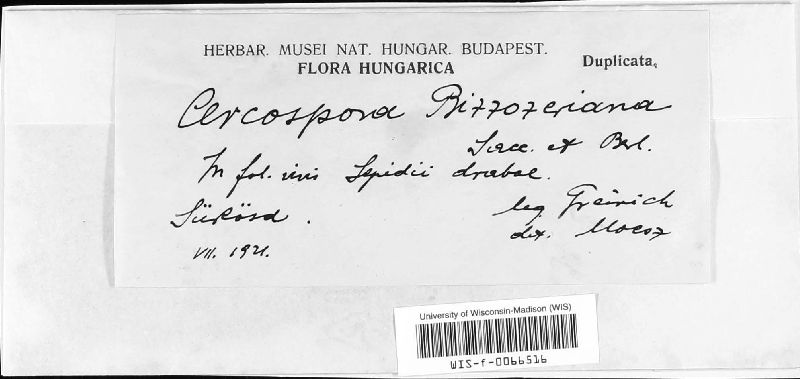 HERBAR. MUSEI NAT. HUNGAR. BUDAPEST.
FLORA HUNGARICA
Duplicata.
Cercospora Bizzozeriana
Sacc. et Berl.
In fol. vivis Lepidii drabae.
Sükösd.
leg. Greinich
det. Moesz
VII. 1921.
University of Wisconsin-Madison (WIS)
WIS-f-0066516